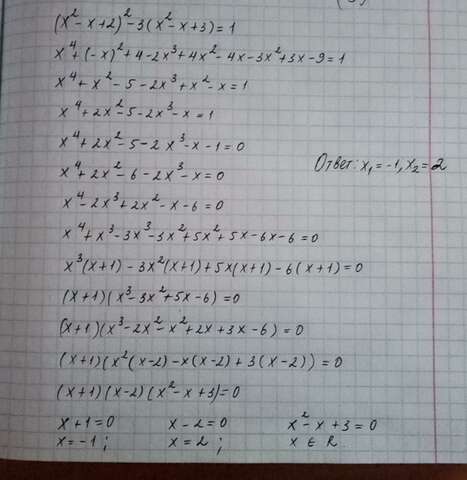 (x²-x+2)²-3(x²-x+3)=1
x⁴+(-x)²+4-2x³+4x²-4x-3x²+3x-9=1
x⁴+x²-5-2x³+x²-x=1
x⁴+2x²-5-2x³-x=1
x⁴+2x²-5-2x³-x-1=0
x⁴+2x²-6-2x³-x=0
Ответ: x₁=-1, x₂=2
x⁴-2x³+2x²-x-6=0
x⁴+x³-3x³-3x²+5x²+5x-6x-6=0
x³(x+1)-3x²(x+1)+5x(x+1)-6(x+1)=0
(x+1)(x³-3x²+5x-6)=0
(x+1)(x³-2x²-x²+2x+3x-6)=0
(x+1)(x²(x-2)-x(x-2)+3(x-2))=0
(x+1)(x-2)(x²-x+3)=0
x+1=0 x-2=0 x²-x+3=0
x=-1; x=2; x∈R